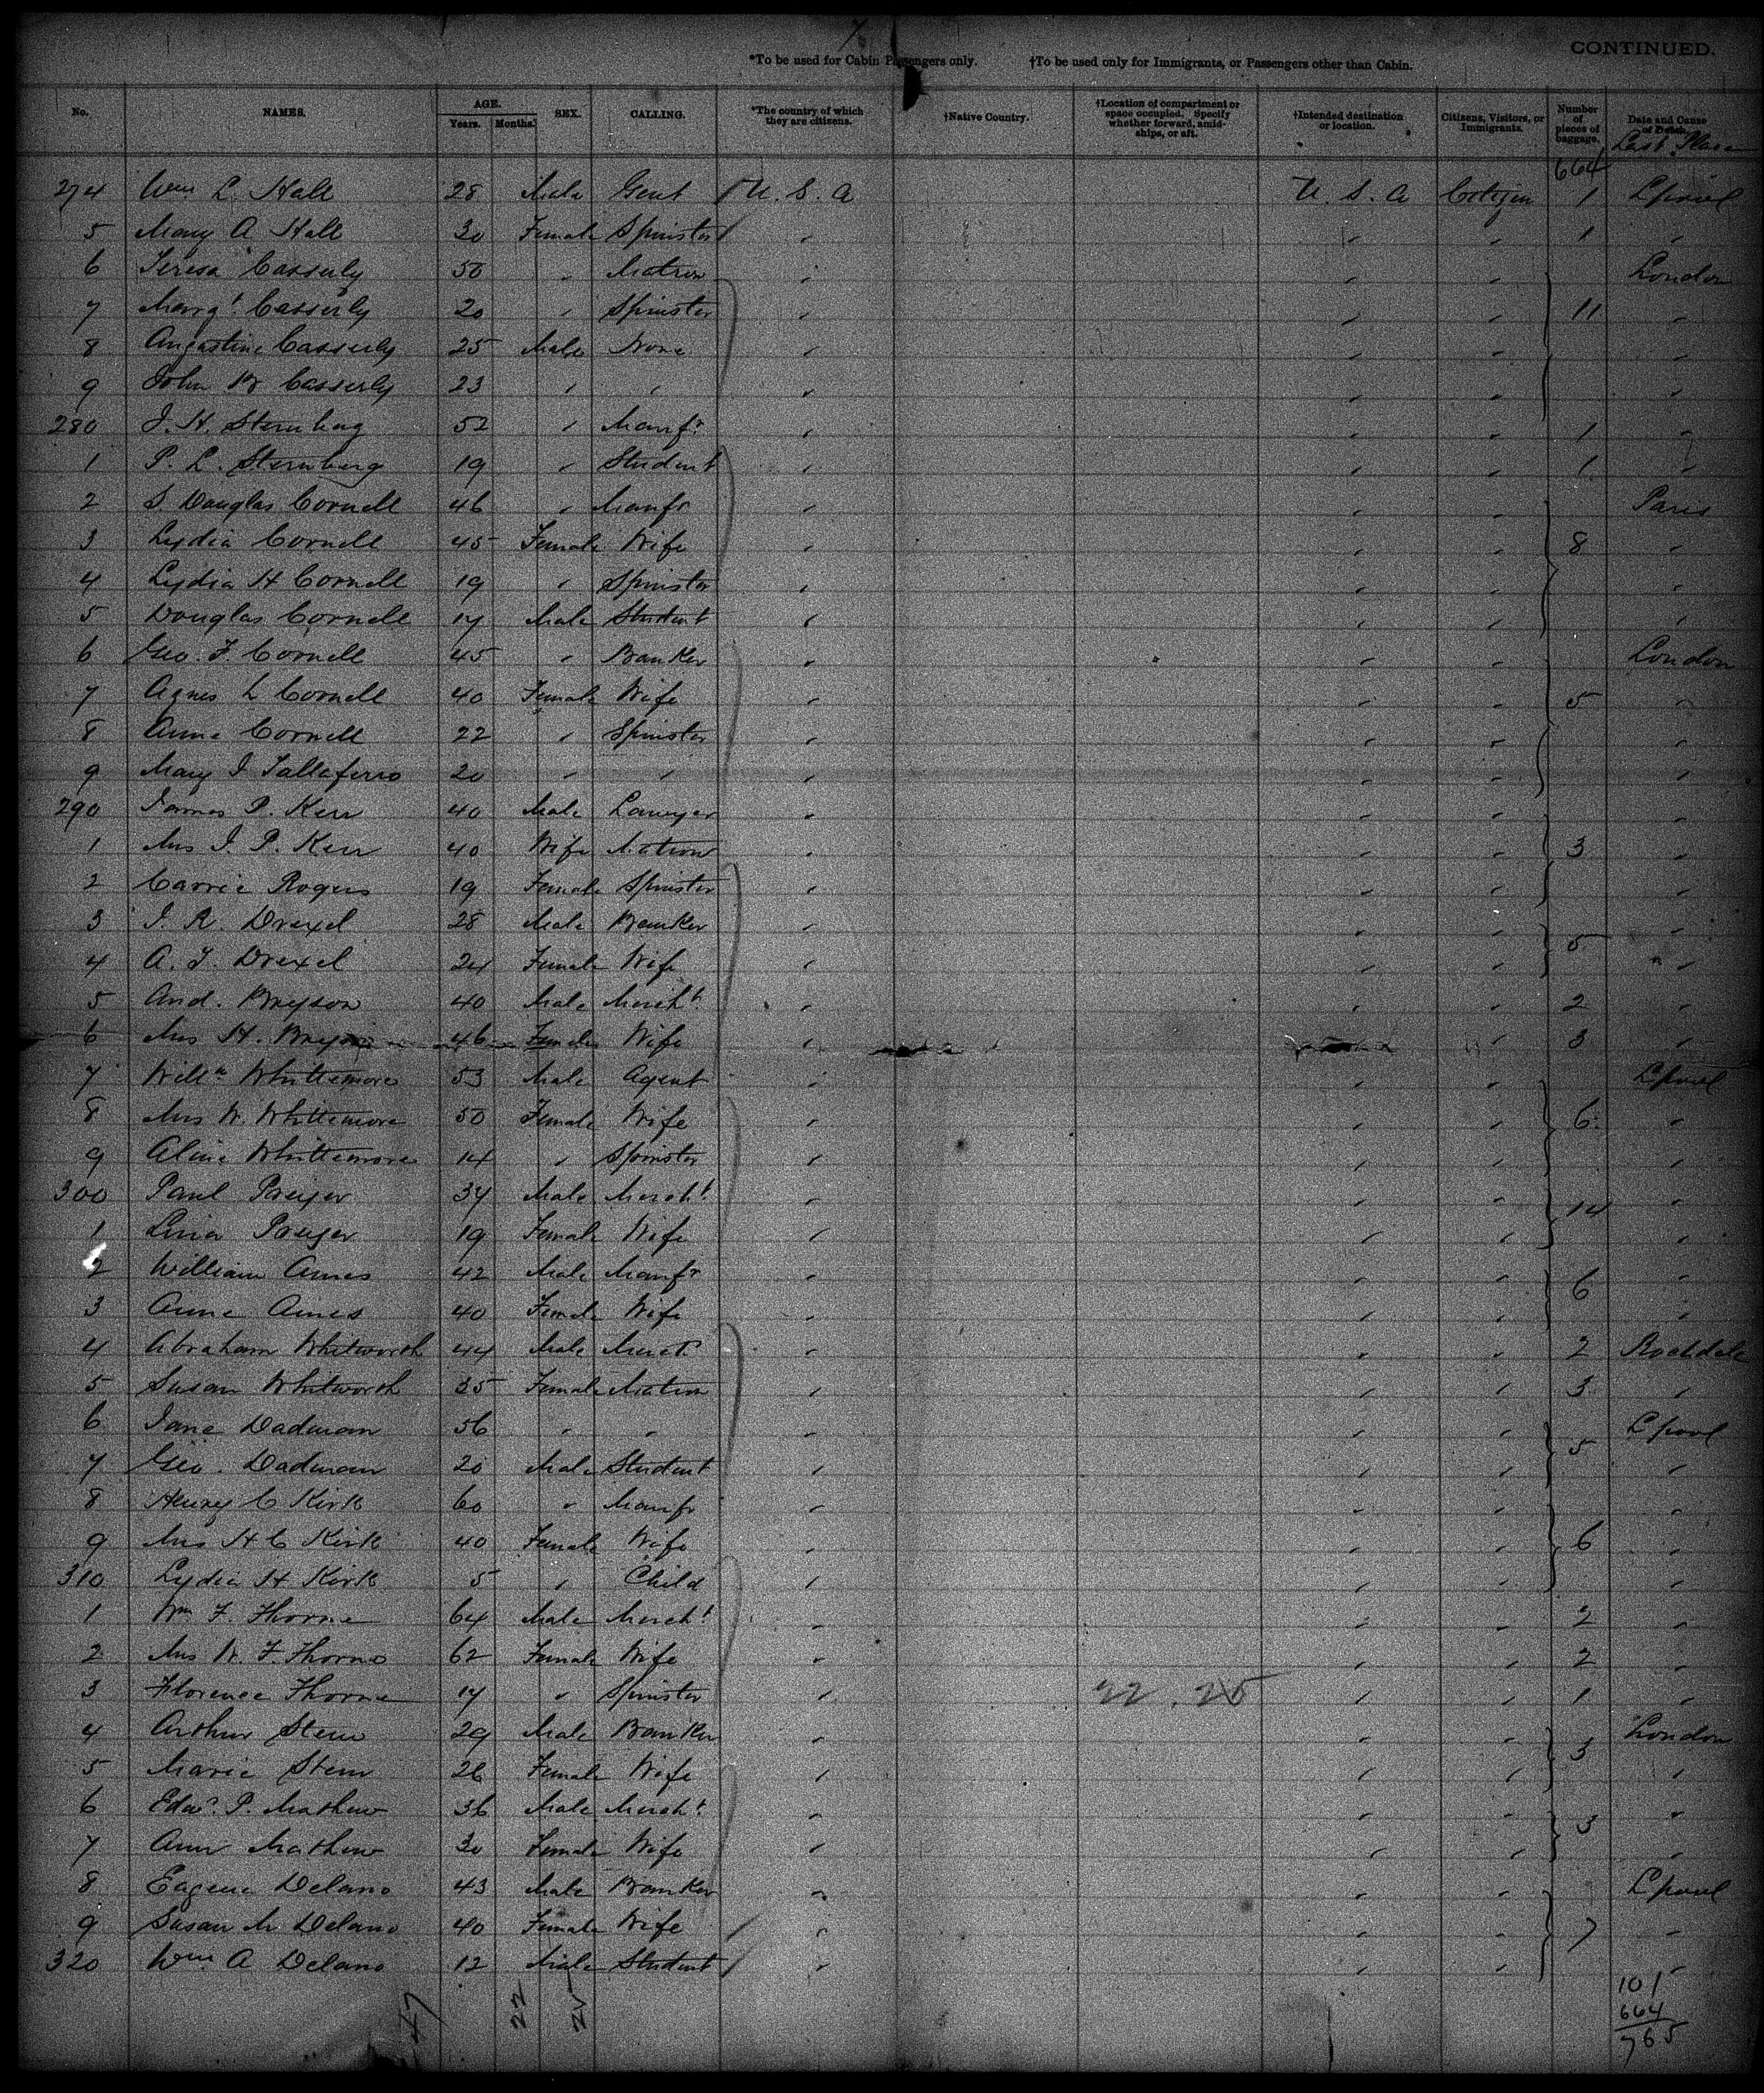 CONTINUED.
*To be used for Cabin Passengers only. †To be used only for Immigrants, or Passengers other than Cabin.
No. NAMES. AGE. Years. Months. SEX. CALLING. *The country of which they are citizens. †Native Country. †Location of compartment or space occupied. Specify whether forward, amidships, or aft. †Intended destination or location. Citizens, Visitors, or Immigrants. Number of pieces of baggage. Date and Cause of Death.
Last Place
664
274 Wm L. Hall 28 Male Gent U. S. A U. S. A Citizen 1 Lpool
5 Mary A Hall 30 Female Spinster " " " 1 "
6 Teresa Casserly 50 " Matron " " " London
7 Margt. Casserly 20 " Spinster " " " 11 "
8 Augustine Casserly 25 Male None " " " "
9 John B Casserly 23 " " " " " "
280 J. H. Sternberg 52 " Manfr. " " " 1 "
1 P. L. Sternberg 19 " Student " " " 1 "
2 S Douglas Cornell 46 " Manfr " " " Paris
3 Lydia Cornell 45 Female Wife " " " 8 "
4 Lydia H Cornell 19 " Spinster " " " "
5 Douglas Cornell 17 Male Student " " " "
6 Geo. F. Cornell 45 " Banker " " " London
7 Agnes L Cornell 40 Female Wife " " " 5 "
8 Anna Cornell 22 " Spinster " " " "
9 Mary I Tallaferro 20 " " " " " "
290 James P. Kerr 40 Male Lawyer " " " "
1 Mrs J. P. Kerr 40 Wife Matron " " " 3 "
2 Carrie Rogers 19 Female Spinster " " " "
3 J. R. Drexel 28 Male Banker " " " "
4 A. T. Drexel 24 Female Wife " " " 5 "
5 And. Bryson 40 Male Mercht. " " " 2 "
6 Mrs H. Bryson 46 Female Wife " " 3 "
7 Willm Whittemore 53 Male Agent " " " Lpool
8 Mrs W. Whittemore 50 Female Wife " " " 6 "
9 Aline Whittemore 14 " Spinster " " " "
300 Paul 37 Male Mercht. " " " 14 "
1 Lina 19 Female Wife " " " "
2 William Ames 42 Male Manfr " " " 6 "
3 Anna Ames 40 Female Wife " " " "
4 Abraham Whitworth 44 Male Mercht " " " 2 Rochdale
5 Susan Whitworth 35 Female Matron " " " 3 "
6 Jane Dadmun 56 " " " " " Lpool
7 Geo. Dadmun 20 Male Student " " " 5 "
8 Henry C Kirk 60 " Manfr " " " "
9 Mrs H C Kirk 40 Female Wife " " " 6 "
310 Lydia H Kirk 5 " Child " " " "
1 Wm F. Thorne 64 Male Mercht. " " " 2 "
2 Mrs W. F. Thorne 62 Female Wife " " " 2 "
3 Florence Thorne 17 " Spinster " 22 . 25 " " 1 "
4 Arthur Stern 29 Male Banker " " " London
5 Marie Stern 26 Female Wife " " " 3 "
6 Edwd. P. Mathew 36 Male Mercht. " " " "
7 Ann Mathew 30 Female Wife " " " 3 "
8 Eugene Delano 43 Male Banker " " " Lpool
9 Susan M. Delano 40 Female Wife " " " 7 "
320 Wm A Delano 12 Male Student " " " "
47 22 25
101
664
765